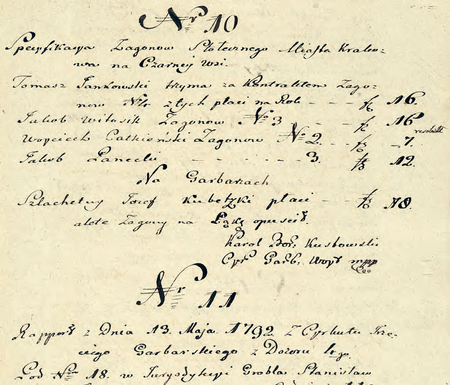 Nr 10
Specyfikacya Zagonow Stołecznego Miasta Krako-
wa na Czarney Wsi.
Tomasz Jankowski trzyma za Kontraktem Zago-
now Nr 4. z tych płaci na Rok - - - f 16.
Jakob Zagonow Nr 3 - - - f 16
Woyciech Zagonow Nr 2. - - f 7.
Jakob - - - 3. - - f 12.
Na Garbarzach
Szlachetny Jozef Kubecki płaci - - f 18.
ale te Zagony na Łąkę opuścił.
Karol Kusbowski
Cyr. Garb. Woyt mpp
Nr 11
Rapport z Dnia 13. Maja 1792 z Cyrkułu Trze-
ciego Garbarskiego z Dozoru 4go
Pod Nrm 18. w Juryzdykcyi Grobla Stanisław